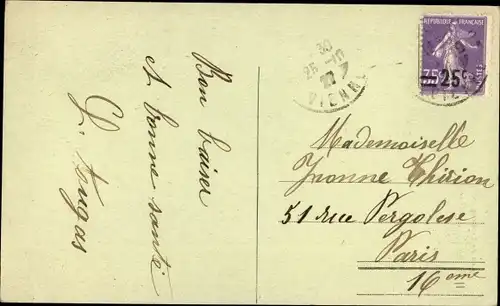 Bon baiser
et bonne santé
L. Fougas
30
25-10
27
VIENNE
REPUBLIQUE FRANÇAISE
35 25c
Mademoiselle
Yvonne Thirion
51 rue Pergolese
Paris
16eme